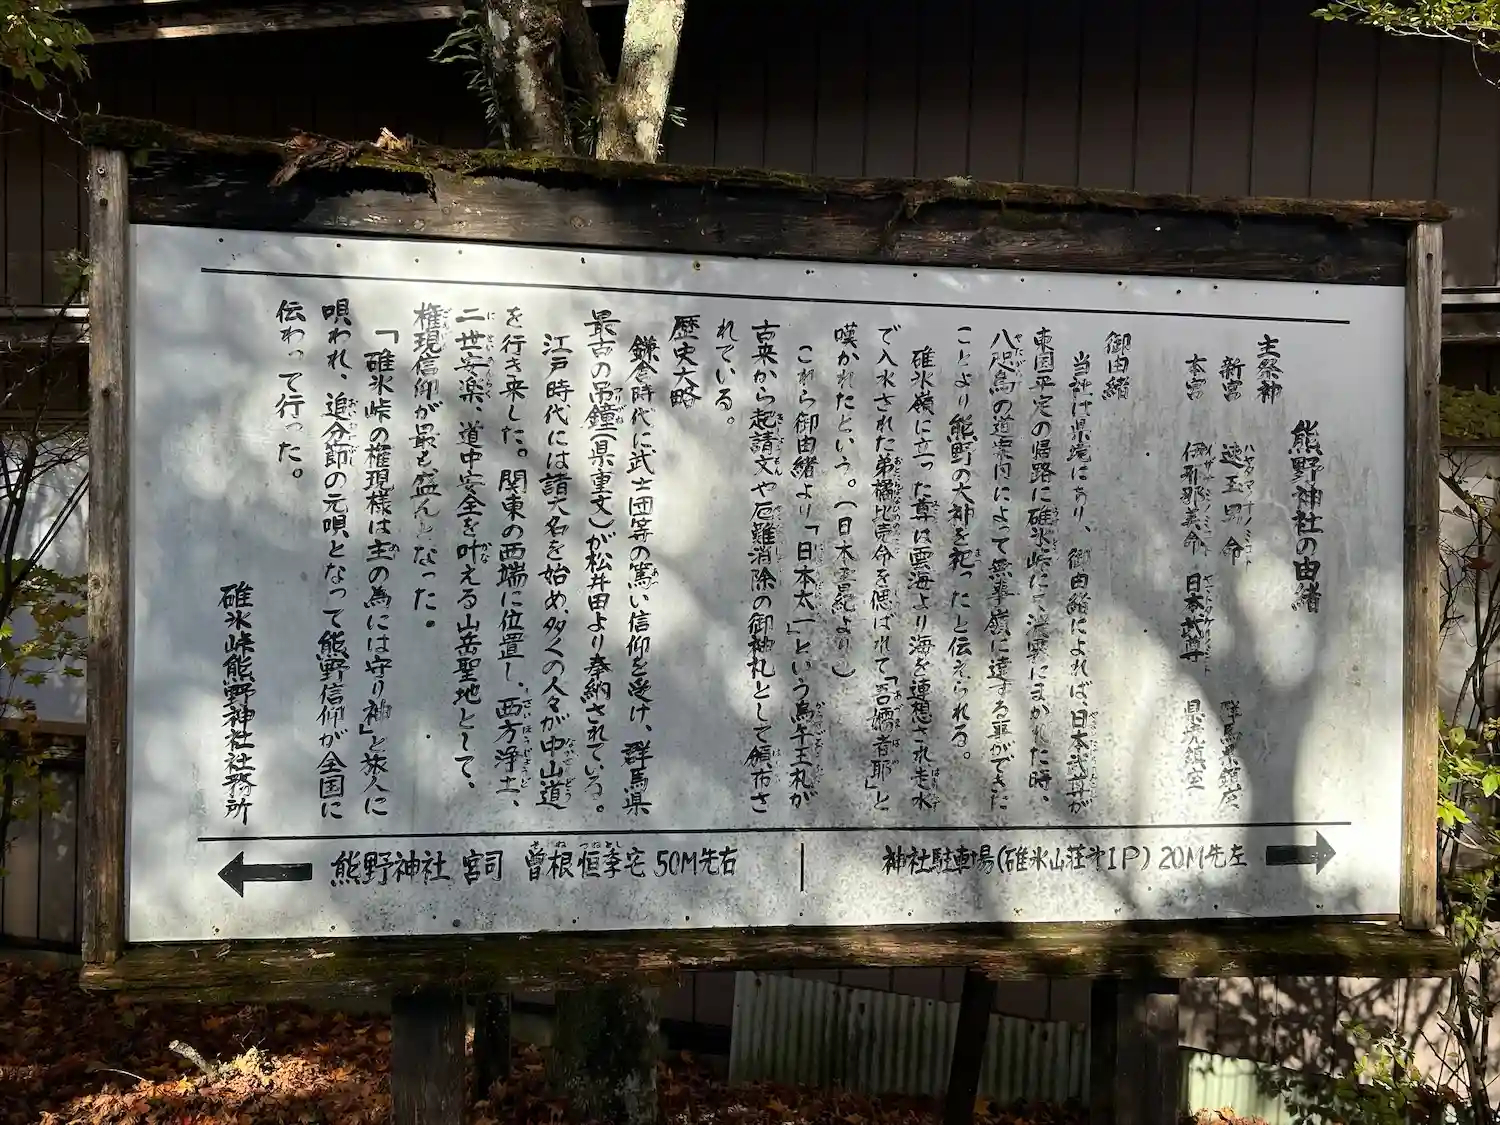 熊野神社の由緒
主祭神
新宮 速玉男命 群馬県鎮座
本宮 伊邪那美命 日本武尊 県境鎮座
御由緒
当社は県境にあり、御由緒によれば、日本武尊が
東国平定の帰路に碓氷峠にて、濃霧にまかれた時、
八咫烏の道案内によって無事嶺に達する事ができた
ことより熊野の大神を祀ったと伝えられる。
碓氷嶺に立った尊は雲海より海を連想され走水
で入水された弟橘比売命を偲ばれて「吾嬬者耶」と
嘆かれたという。(日本書紀より)
これら御由緒より「日本太一」という烏午王札が
古来から起請文や厄難消除の御神札として頒布さ
れている。
歴史大略
鎌倉時代に武士団等の篤い信仰を受け、群馬県
最古の吊鐘(県重文)が松井田より奉納されている。
江戸時代には諸大名を始め、多くの人々が中山道
を行き来した。関東の西端に位置し、西方浄土、
二世安楽、道中安全を叶える山岳聖地として、
権現信仰が最も盛んとなった。
「碓氷峠の権現様は主の為には守り神」と旅人に
唄われ、追分節の元唄となって熊野信仰が全国に
伝わって行った。
碓氷峠熊野神社社務所
← 熊野神社 宮司 曽根恒季宅 50M先右
神社駐車場(碓氷山荘前IP) 20M先左 →